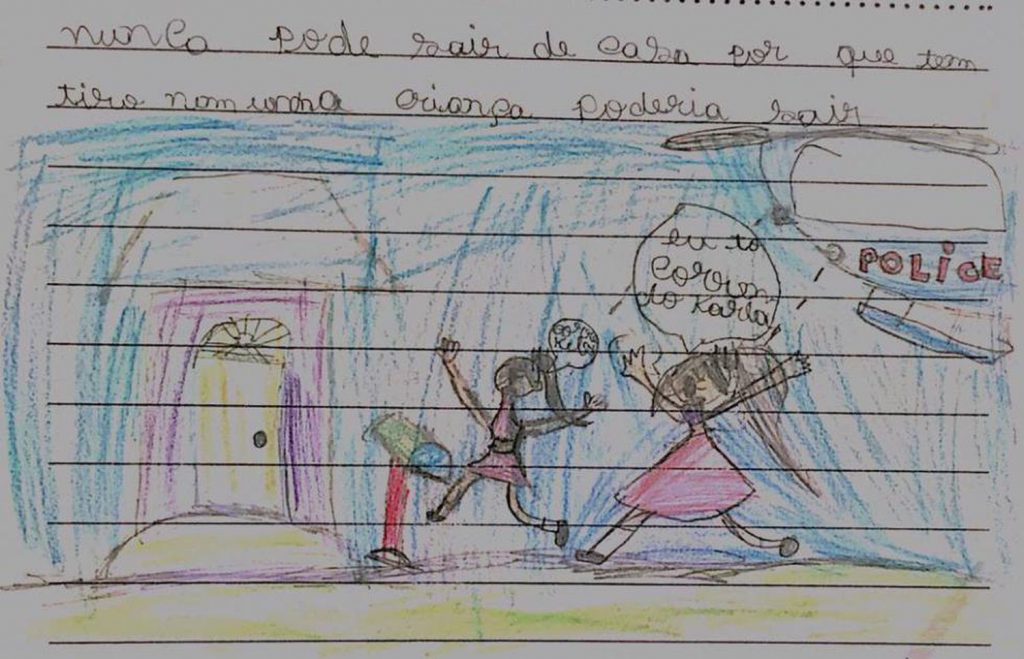 nunca pode sair de casa por que tem
tiro criança poderia sair
eu to
corren
do Karla
POLICE